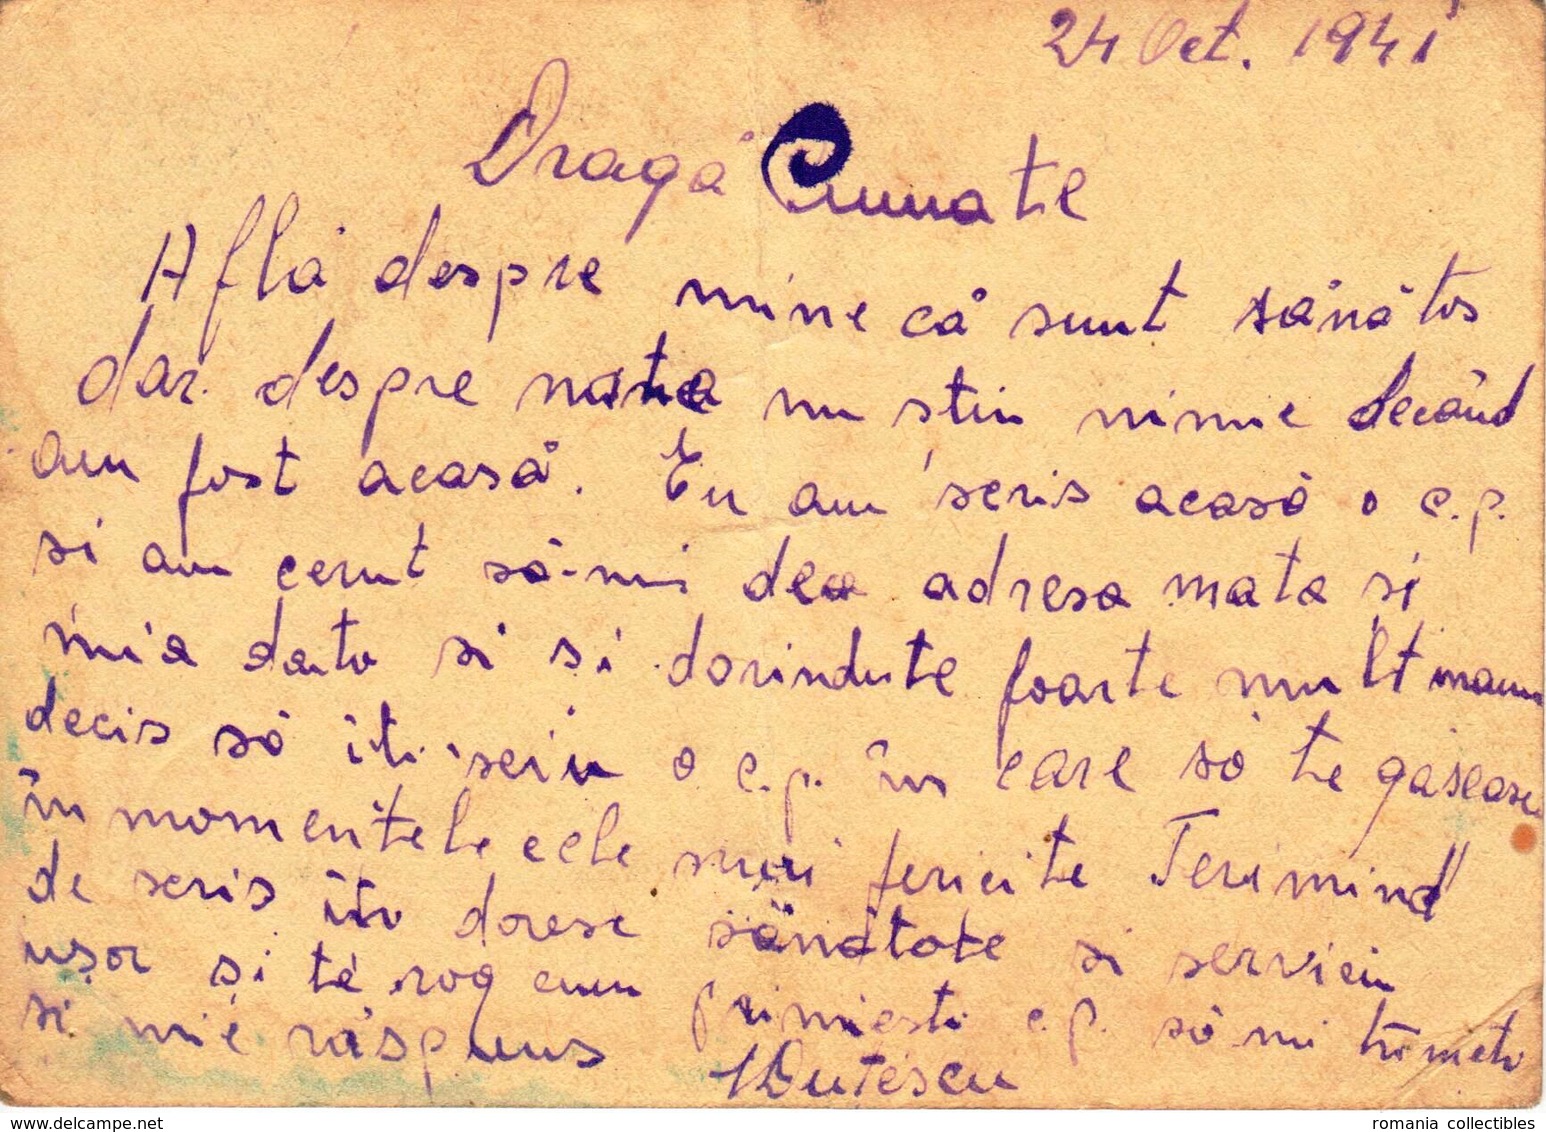 24 Oct. 1941
Dragă Cumnate
Află despre mine că sunt sănătos
dar despre mata nu stiu nimic decând
am fost acasă. Eu am scris acasă o c.p.
si am cerut să-mi dea adresa mata si
mia dato si si dorindute foarte mult mam
decis să iti scriu o c.p. în care să te găseasc
în momentele cele mai fericite Terimind
de scris îto doresc sănătate si serviciu
ușor și te rog cum primesti c.p. să-mi trămeto
si mie răspuns
Dutescu
delcampe.net
romania collectibles